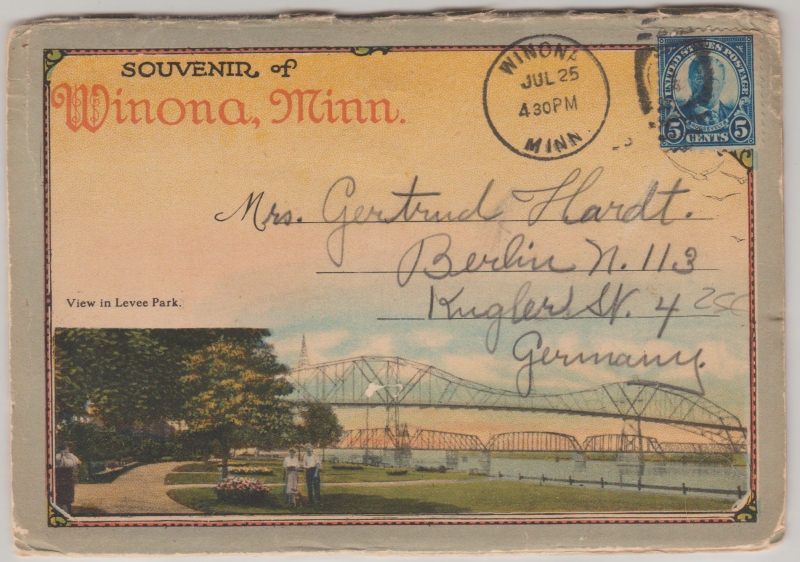 SOUVENIR of
Winona, Minn.
WINONA
JUL 25
4 30 PM
MINN.
UNITED STATES POSTAGE
5 CENTS 5
Mrs. Gertrud Hardt.
Berlin N. 113
Kugler St. 4
Germany.
View in Levee Park.